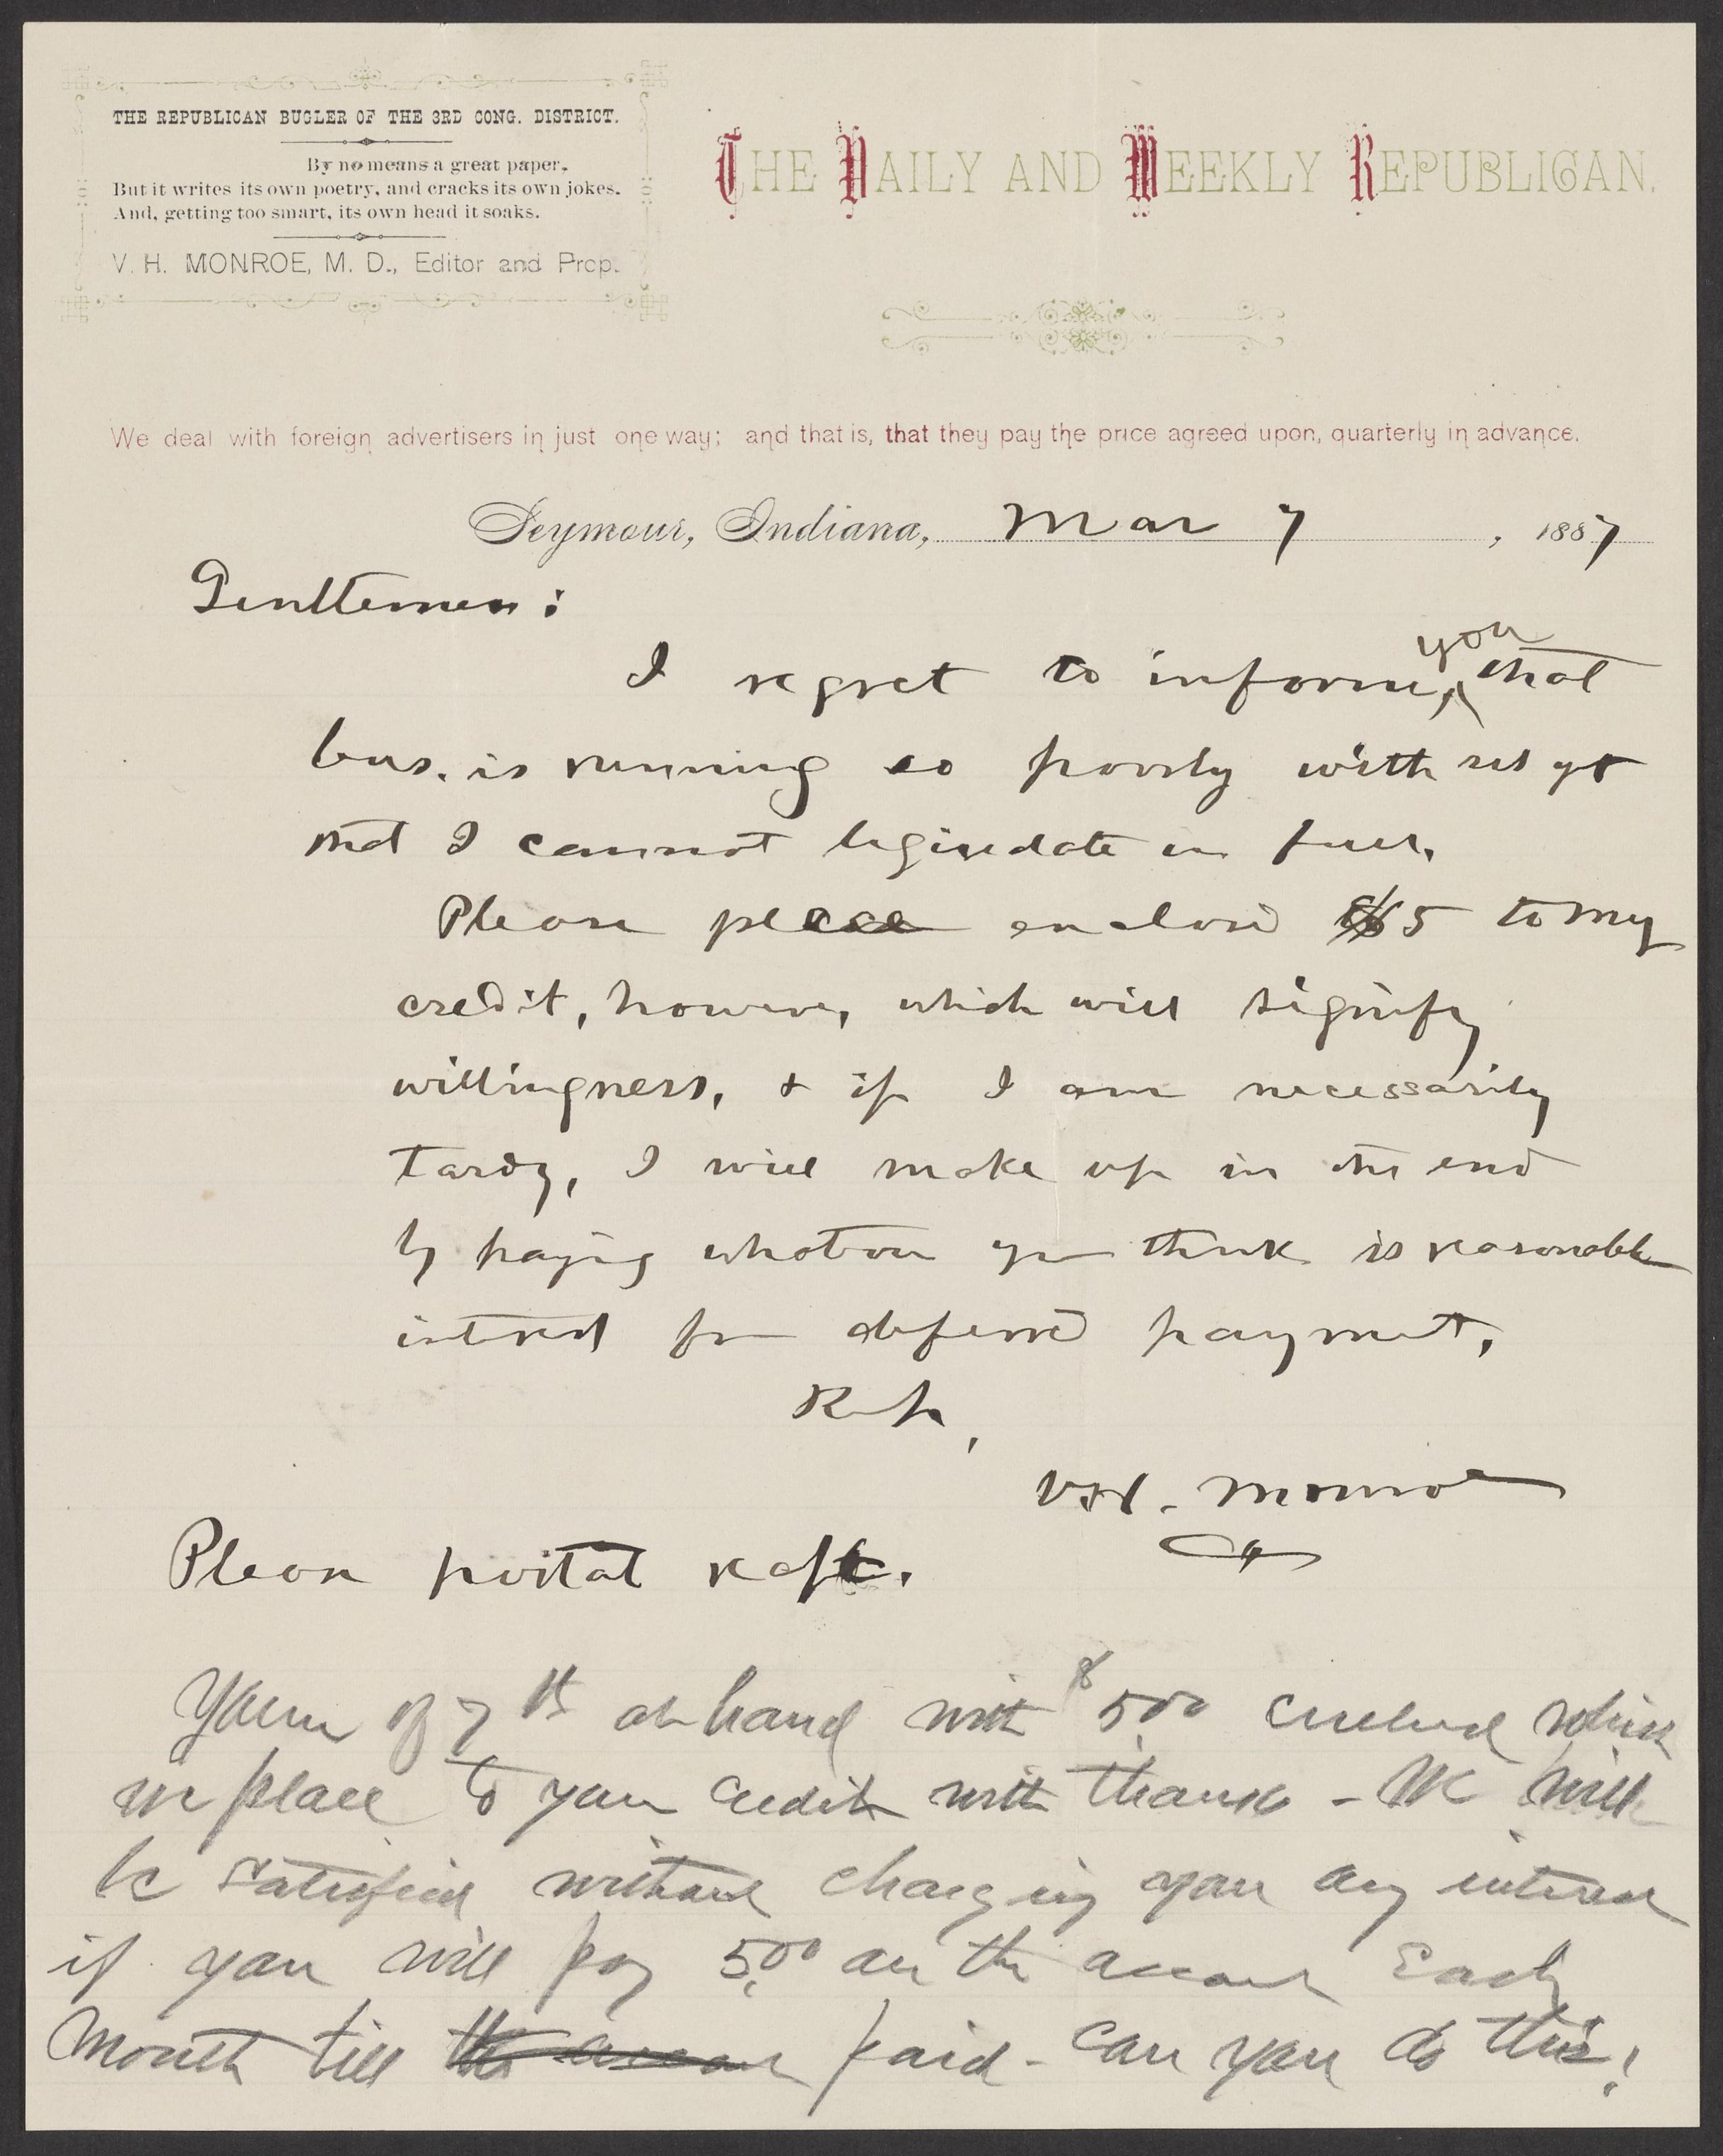 THE REPUBLICAN BUGLER OF THE 3RD CONG. DISTRICT.
By no means a great paper,
But it writes its own poetry, and cracks its own jokes.
And, getting too smart, its own head it soaks.
V. H. MONROE, M. D., Editor and Prop.
THE DAILY AND WEEKLY REPUBLICAN.
We deal with foreign advertisers in just one way; and that is, that they pay the price agreed upon, quarterly in advance.
Seymour, Indiana, Mar 7, 1887
Gentlemen:
I regret to inform, you that
bus. is running so poorly with us yet
that I cannot liquidate in full.
Please place enclosed $5 to my
credit, however, which will signify
willingness, & if I am necessarily
tardy, I will make up in the end
by paying whatever you think is reasonable
interest for deferred payment.
Resp,
V.H. Monroe
Please postal rect.
Yours of 7th at hand with $5.00 enclosed which
we place to your credit with thanks - We will
be satisfied without charging you any interest
if you will pay 5.00 on the account Each
Month till the account paid - Can you do this!